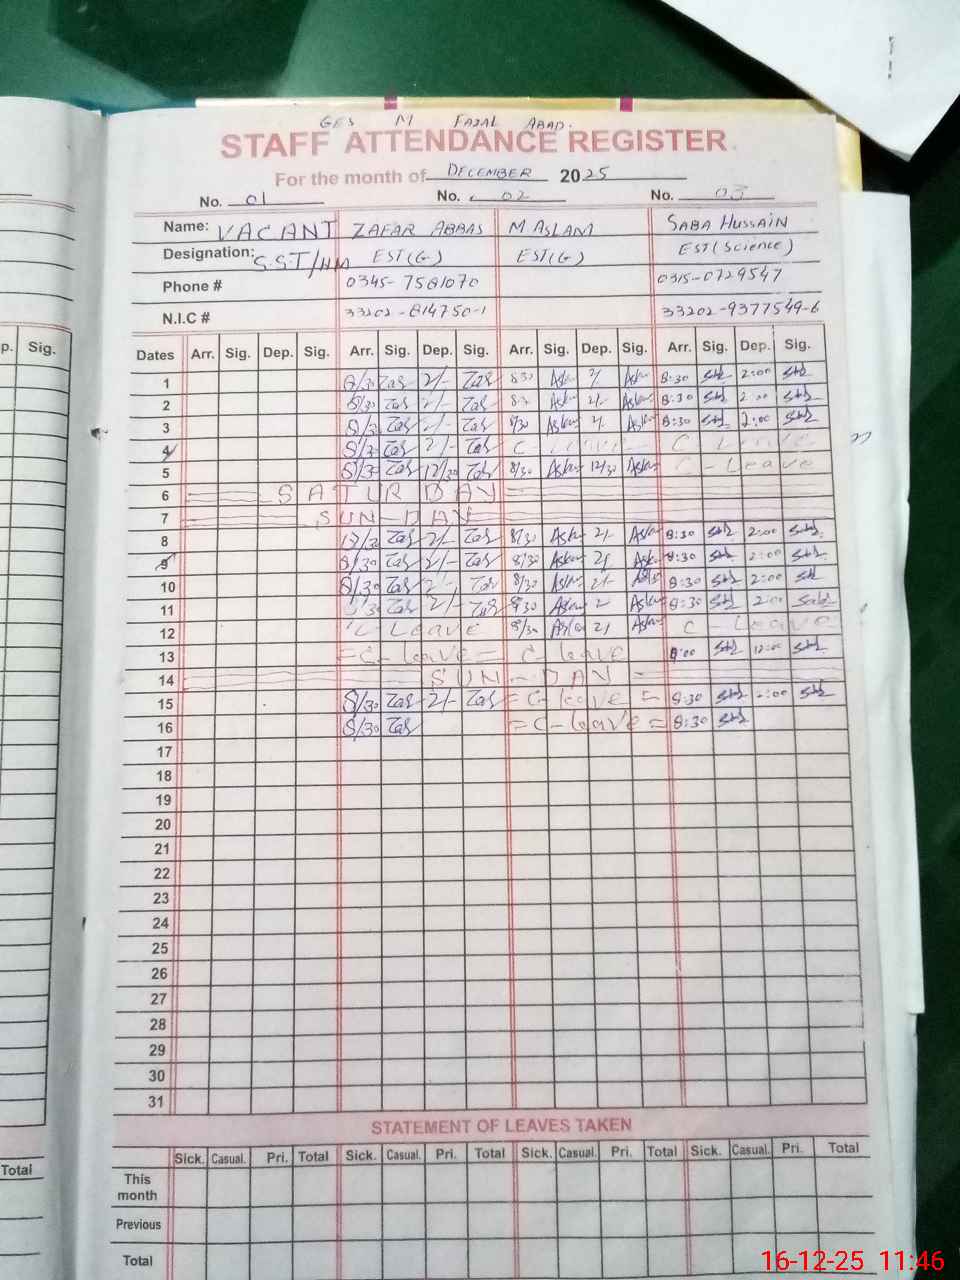 GES M FAZAL ABAD.
STAFF ATTENDANCE REGISTER
For the month of DECEMBER 2025
No. 01 No. 02 No. 03
Name: VACANT ZAFAR ABBAS M ASLAM SABA HUSSAIN
Designation: S.S.T/HM EST(G) EST(G) EST(Science)
Phone # 0345-7581070 0315-0729547
N.I.C # 33202-814750-1 33202-9377549-6
p. Sig. Dates Arr. Sig. Dep. Sig. Arr. Sig. Dep. Sig. Arr. Sig. Dep. Sig. Arr. Sig. Dep. Sig.
1 8/30 Zas 2/- Zas 830 Aslam 2/ Aslam 8:30 2:00
2 8/30 Zas 2/- Zas 830 Aslam 2/- Aslam 8:30 2:00
3 8/30 Zas 2/- Zas 8/30 Aslam 2/ Aslam 8:30 2:00
4 8/30 Zas 2/- Zas C Leave C Leave
5 8/30 Zas 12/30 Zas 8/30 Aslam 12/30 Aslam C-Leave
6 SATURDAY
7 SUN-DAY
8 Zas 2/- Zas 8/30 Aslam 2/- Aslam 8:30 2:00
9 8/30 Zas 2/- Zas 8/30 Aslam 2/ Aslam 8:30 2:00
10 8/30 Zas 2/- Zas 8/30 Aslam 2/- 8:30 2:00
11 8/30 Zas 2/- Zas Aslam 2 Aslam 8:30 2:00 Saba
12 C-Leave 8/30 Aslam 2/ Aslam C-Leave
13 =C-leave= C-leave 8:00 12:00
14 SUN-DAY
15 8/30 Zas 2/- Zas =C-leave= 8:30 2:00
16 8/30 Zas =C-leave= 8:30
17
18
19
20
21
22
23
24
25
26
27
28
29
30
31
STATEMENT OF LEAVES TAKEN
Sick. Casual. Pri. Total Sick. Casual. Pri. Total Sick. Casual. Pri. Total Sick. Casual. Pri. Total
Total This
month
Previous
Total
16-12-25 11:46